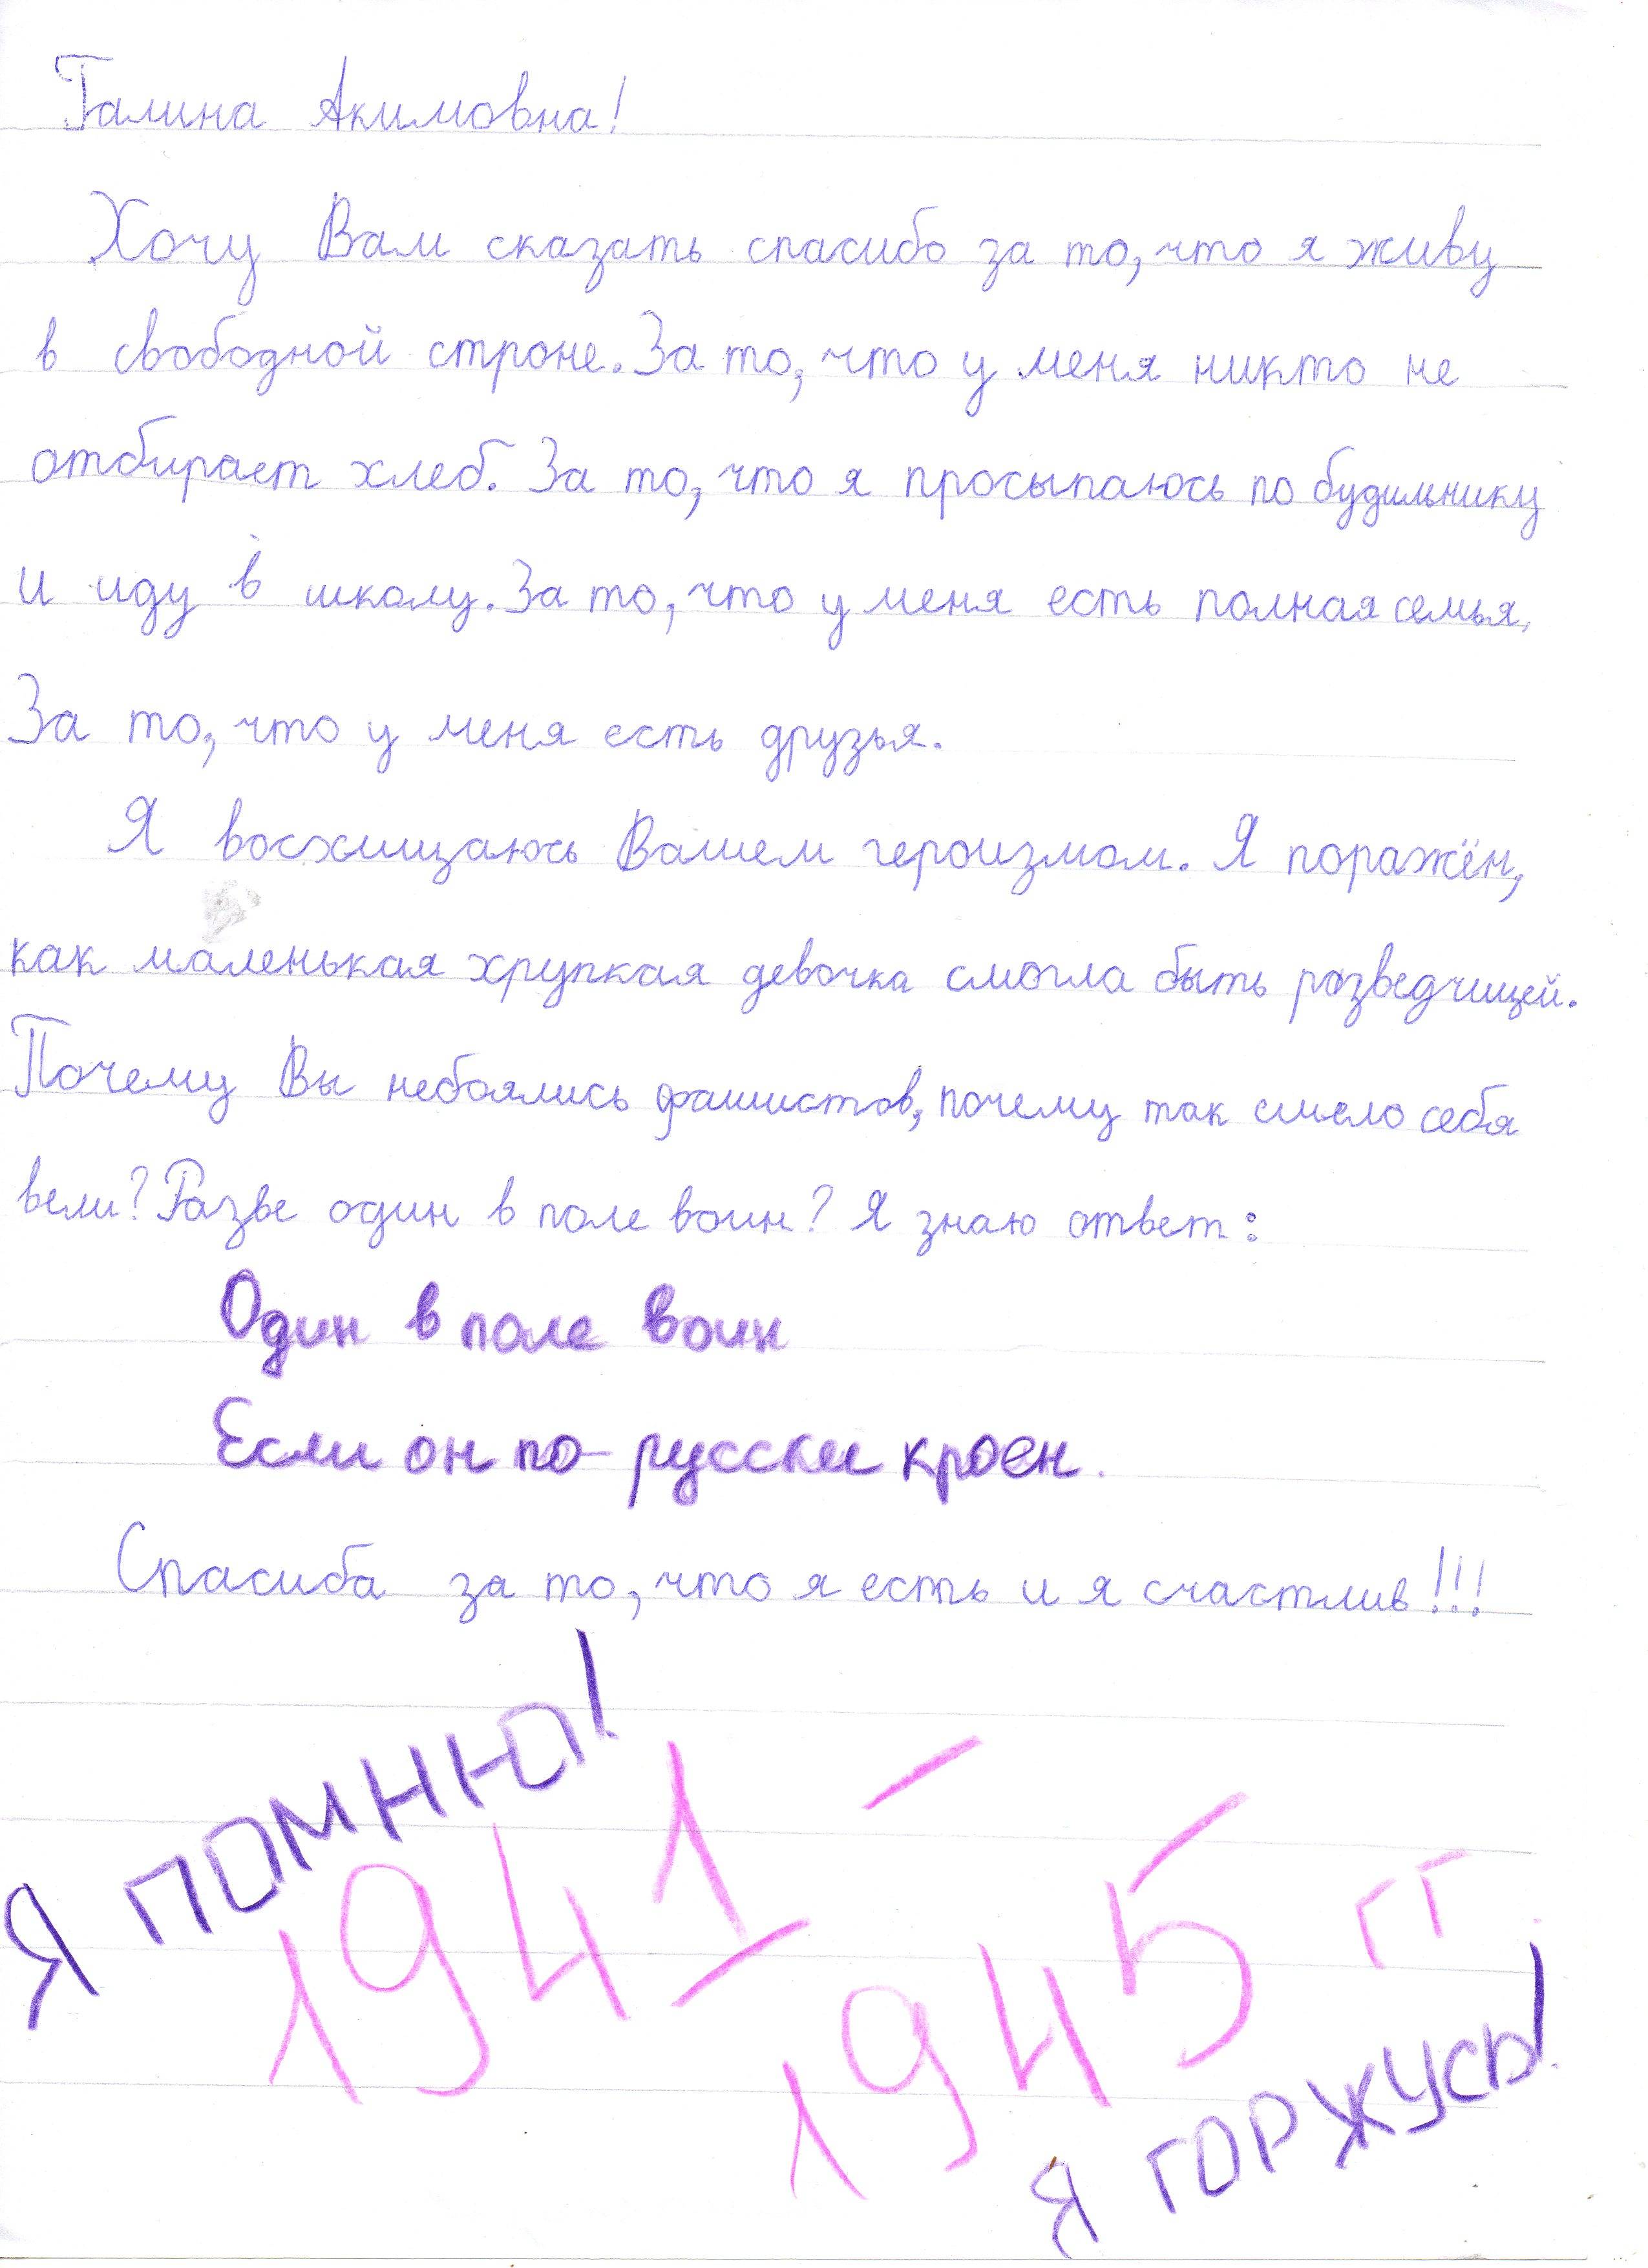 Галина Акимовна!
Хочу Вам сказать спасибо за то, что я живу
в свободной строне. За то, что у меня никто не
отбирает хлеб. За то, что я просыпаюсь по будильнику
и иду в школу. За то, что у меня есть полная семья.
За то, что у меня есть друзья.
Я восхищаюсь Вашем героизмом. Я поражён,
как маленькая хрупкая девочка смогла быть разведчицей.
Почему Вы небоялись фашистов, почему так смело себя
вели? Разве один в поле воин? Я знаю ответ:
Один в поле воин
Если он по-русски кроен.
Спасиба за то, что я есть и я счастлив!!!
Я ПОМНЮ!
1941 –
1945 гг
Я ГОРЖУСЬ!